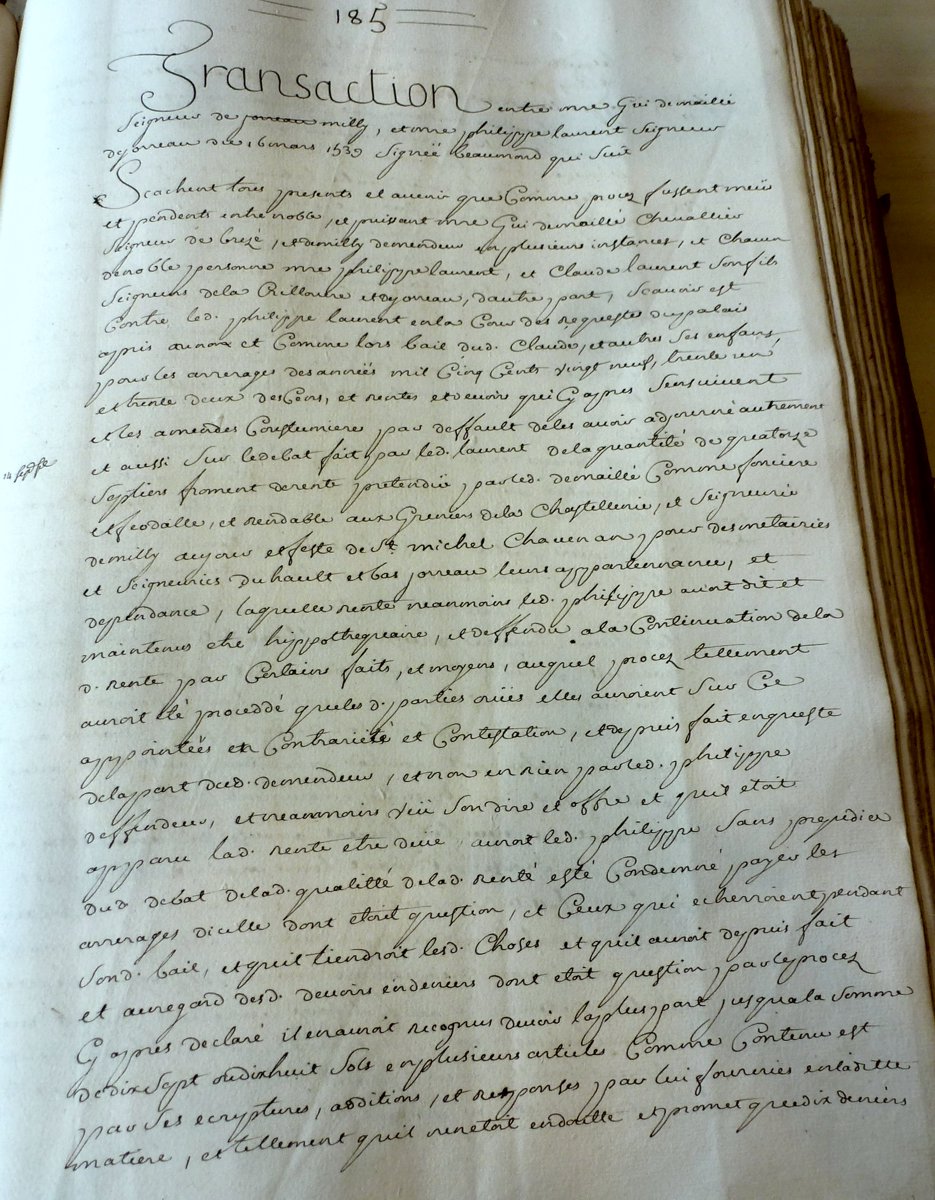 185
Transaction entre mre Gui demaillé
Seigneur de jorreau milly, et mre philippe laurent Seigneur
de jorreau du 16 mars 1539 Signée beaumond qui Suit
Scachent tous presents et avenir que Comme procez fussent meüs
et pendents entre noble, et puissant mre Gui demaillé Chevallier
Seigneur de brezé, et demilly demendeur en plusieurs instances, et Chacun
denoble personne mre philippe laurent, et Claude laurent Son fils
Seigneurs dela Rilloüre et dejorreau, dautre part, Scavoir est
Contre led. philippe laurent enla Cour des requestes du palais
apris et Comme lors bail dud. Claude, et autres Ses enfans,
pour les arrerages des années mil Cinq Cents vingt neuf, trente un,
et trente deux des Cens, et rentes et devoirs qui Cy apres Sensuivent
et les amendes Coustumiere par deffault deles avoir adjourné autrement
et aussi Sur ledebat fait par led. laurent dela quantité de quatorze
Septiers froment derente pretendüe par led. demaillé Comme fonciere
et feodalle, et rendable aux Greniers dela Chastellenie, et Seigneurie
demilly aujour et feste de St. michel Chacun an pour des metairies
et Seigneuries du hault et bas jorreau leurs appartennance, et
dependance, laquelle rente neanmoins led. philippe avoit dit et
maintenus etre hippothequaire, et deffendu a la Continuation de la
d. rente par Certains faits, et moyens, auquel procez tellement
auroit été proceddé que les d. parties ouïes elles auroient Sur Ce
appointées en Contrarieté et Contestation, et depuis fait enqueste
dela part dud. demendeur, et non en rien par led. philippe
deffendeur, et neanmoins vüü Son dire et offre et quil etoit
apparu lad. rente etre deüe, auroit led. philippe Sans prejudice
dud. debat delad. qualitté delad. renté esté Condemné payer les
arrerages dicelle dont etoit question, et Ceux qui echerroient pendant
Son d. bail, et quil tiendroit lesd. Choses et quil auroit depuis fait
et au regard desd. devoirs en deniers dont etoit question par le procez
Cy apres declaré il en auroit recognus devoir la plus part jusqua la Somme
de dix Sept ou dixhuit Sols en plusieurs articles Comme Contenu est
par Ses ecryptures, additions, et responses par lui fournies en laditte
matiere, et tellement quil ne etoit endoutte et promet que dix deniers